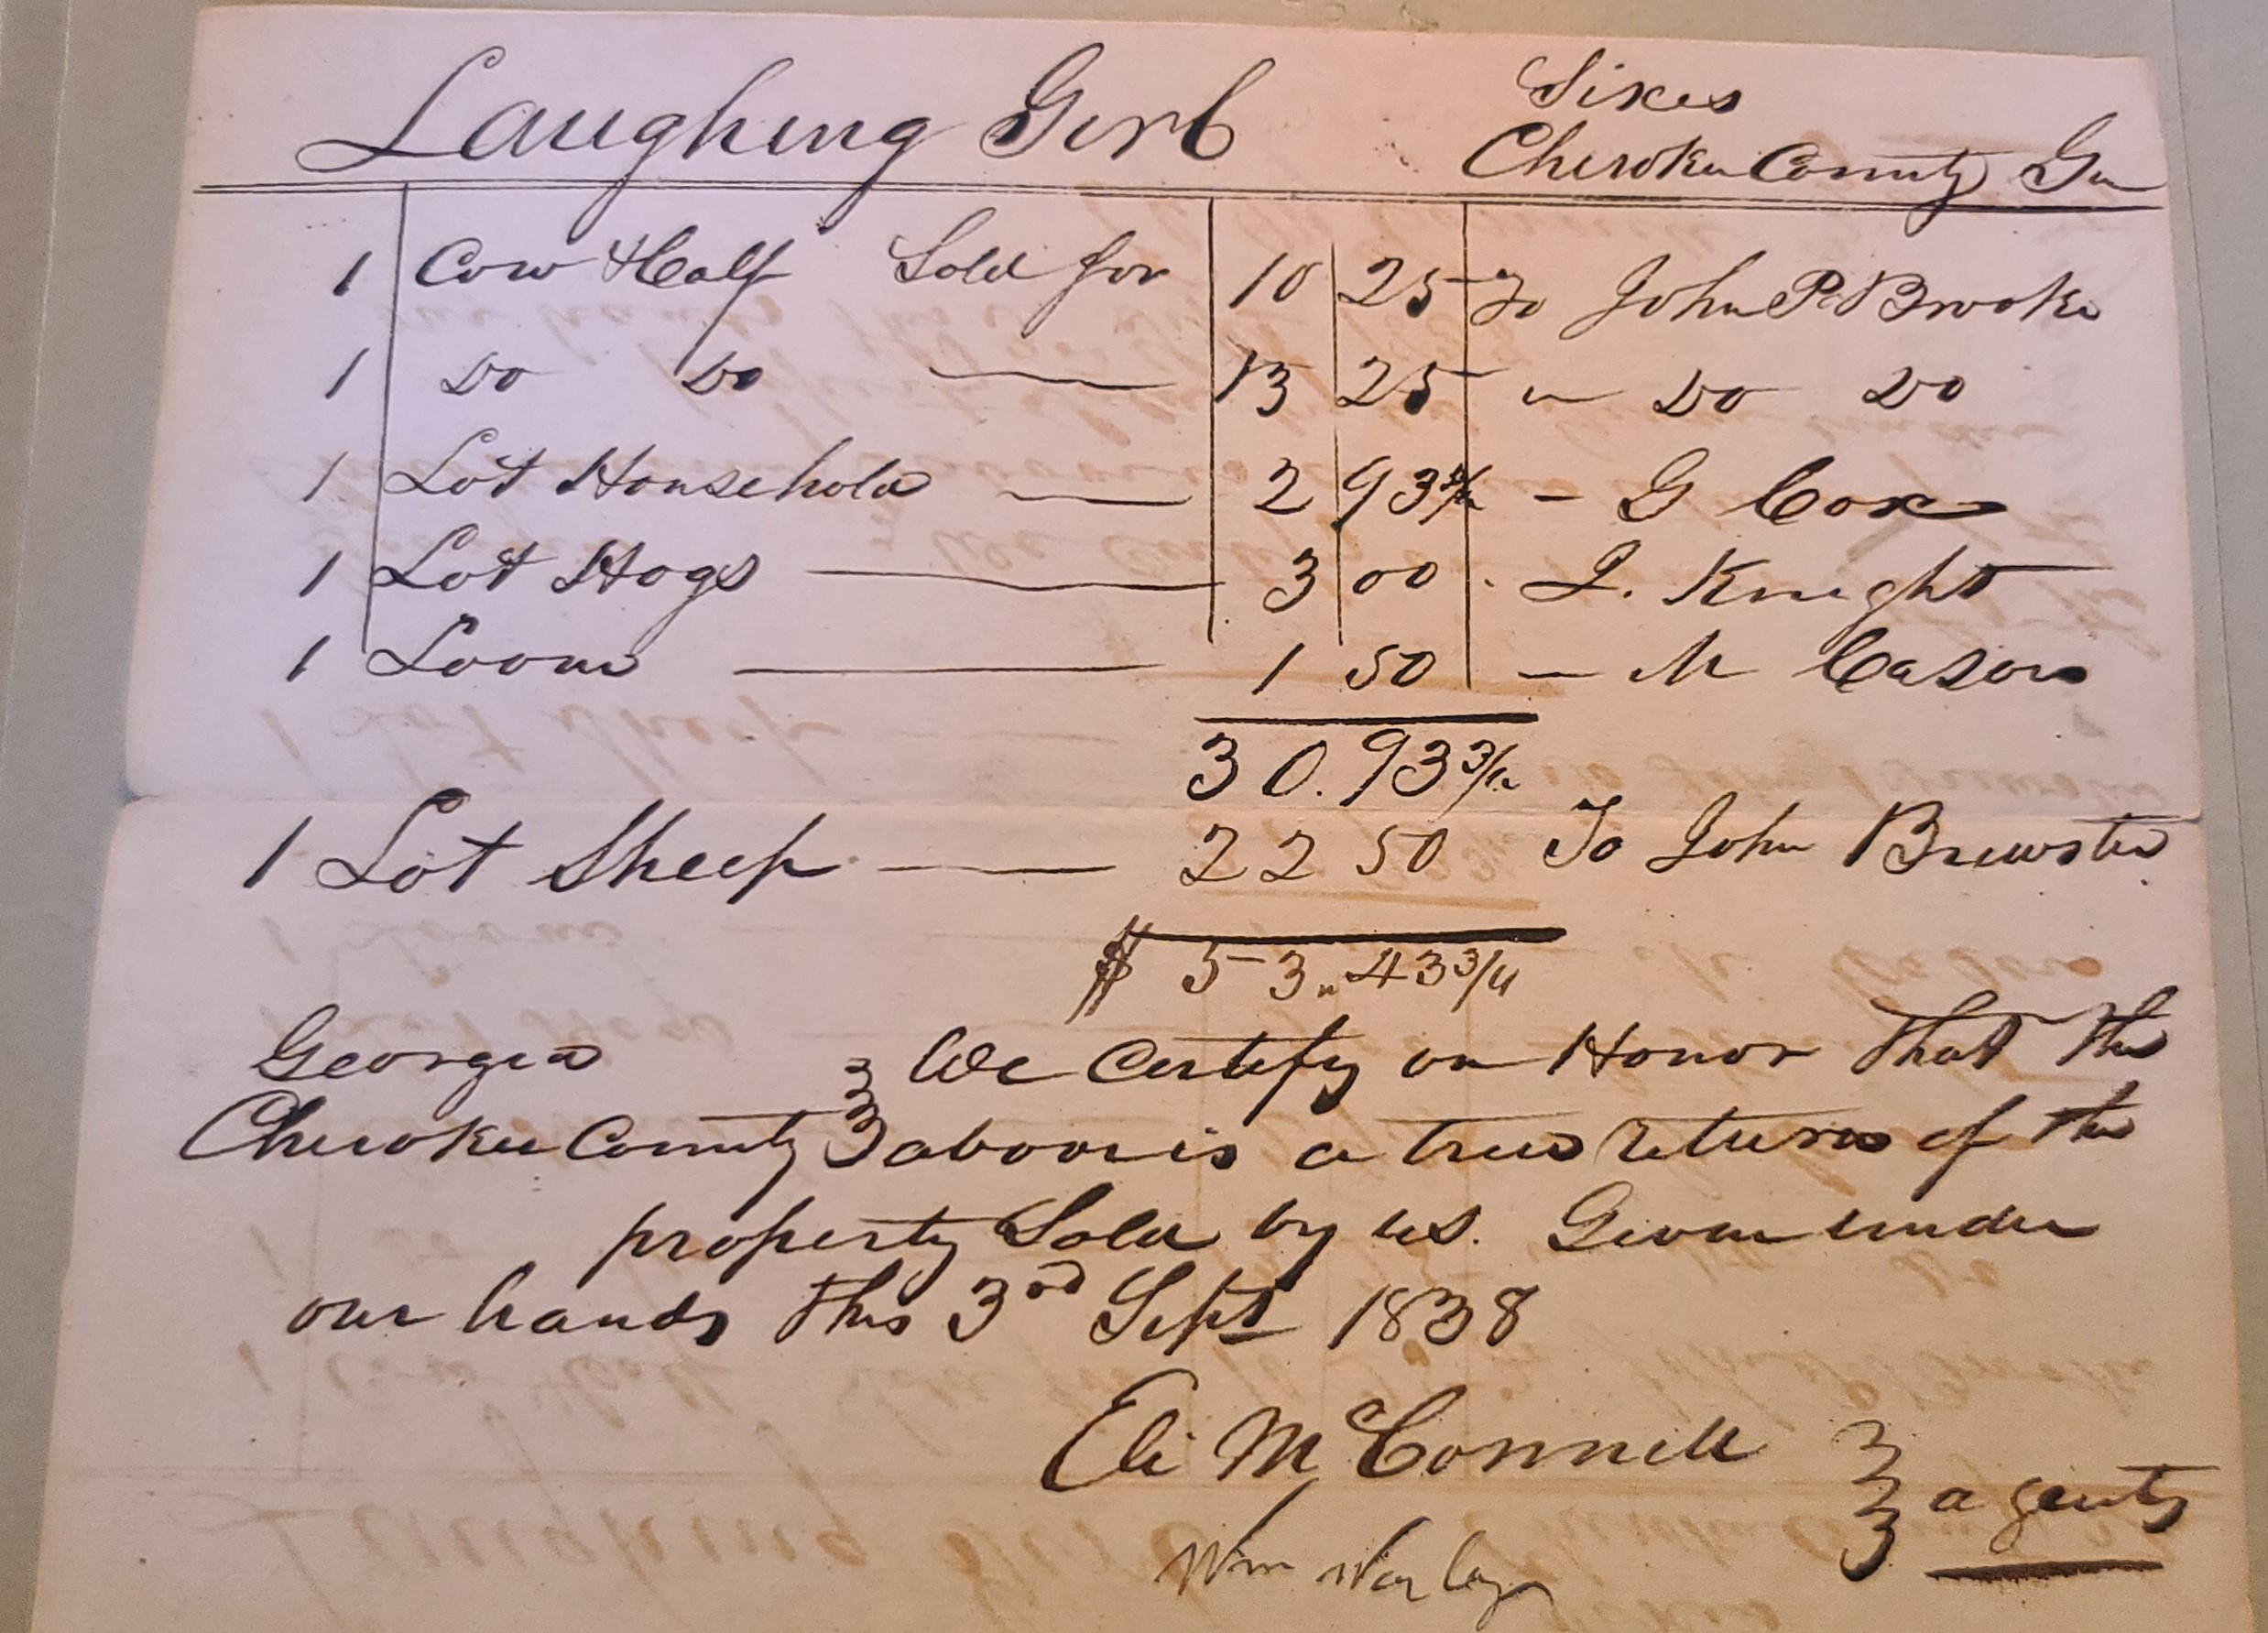 Laughing Girl
Sixes
Cherokee County Ga
1 Cow & Calf Sold for 10 25 To John P. Brooke
1 Do Do — 13 25 " Do Do
1 Lot Household — 2 93 3/4 — G Cox
1 Lot Hogs — 3 00 . J. Knight
1 Loom — 1 50 — M Cason
30.93 3/4
1 Lot Sheep — 22 50 To John Brewster
$ 53.43 3/4
Georgia We Certify on Honor that the
Cherokee County above is a true return of the
property Sold by us. Given under
our hands this 3rd Sept 1838
Eli McConnell
agents
Wm